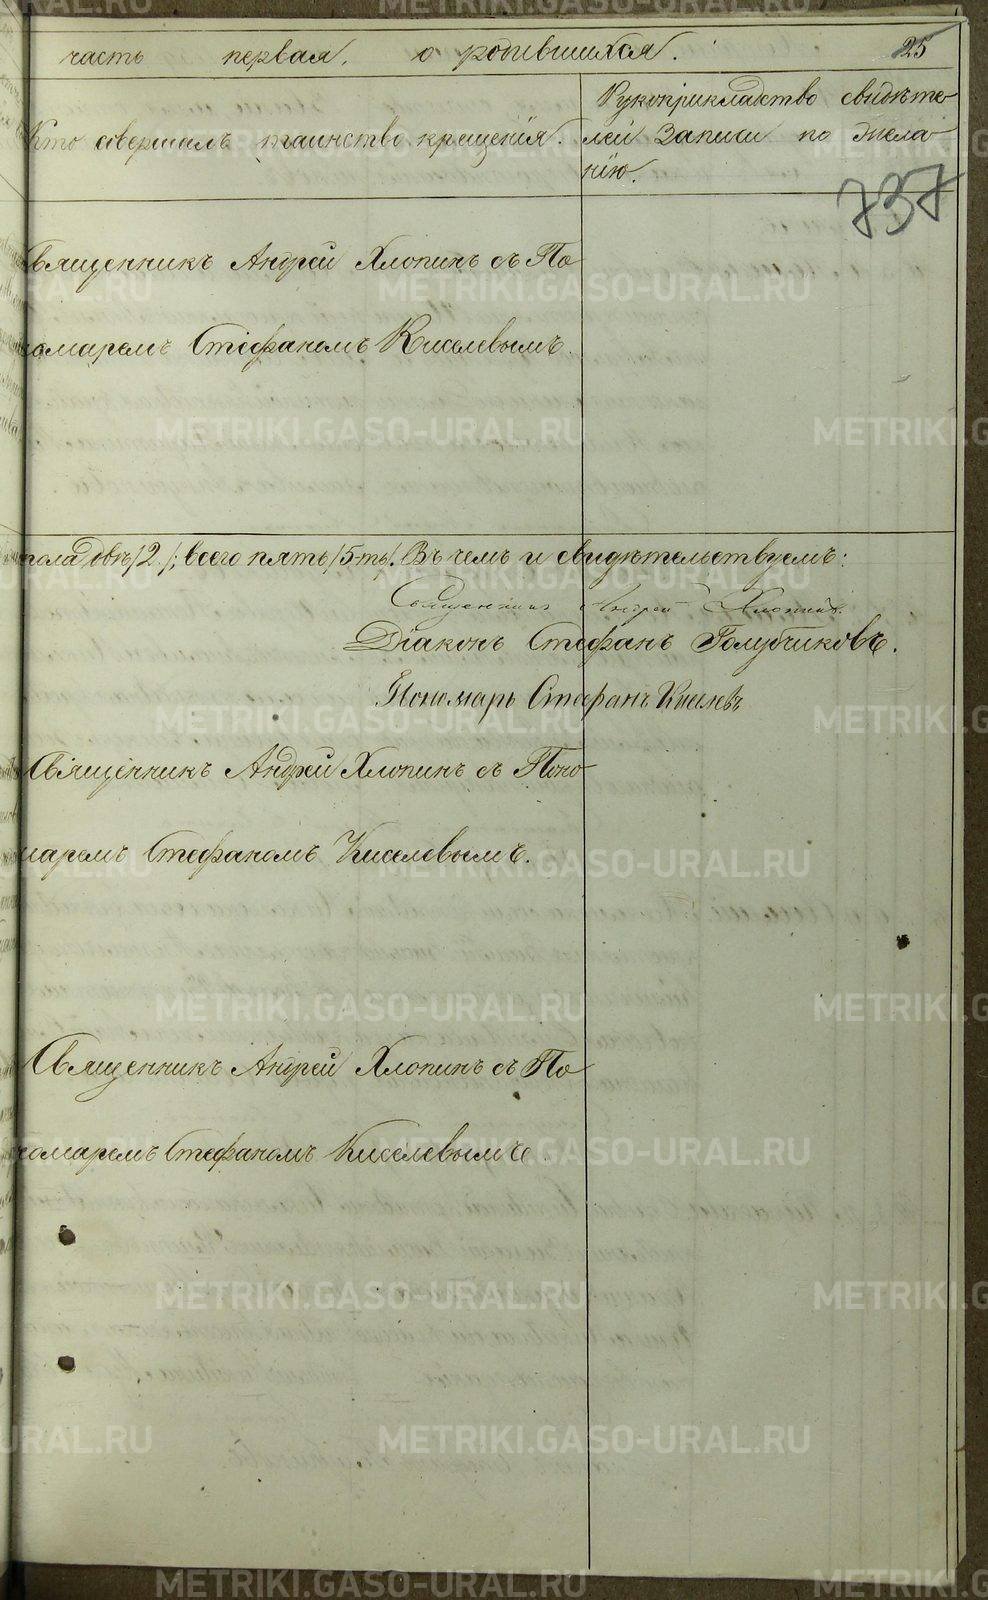 часть первая. о родившихся. 25
Кто совершалъ таинство крещенія.
Рукоприкладство свидѣте
лей Записи по жела
нію.
737
Священникъ Андрей Хлопинъ съ По
номаремъ Стефаномъ Киселевымъ.
пола двѣ /2/; всего пять /5-ть/. Въ чемъ и свидѣтельствуемъ:
Священникъ Андрей Хлопинъ.
Діаконъ Стефанъ Голубчиковъ.
Пономарь Стефанъ Киселевъ
Священникъ Андрей Хлопинъ съ Поно
маремъ Стефаномъ Киселевымъ.
Священникъ Андрей Хлопинъ съ По
номаремъ Стефаномъ Киселевымъ.
METRIKI.GASO-URAL.RU